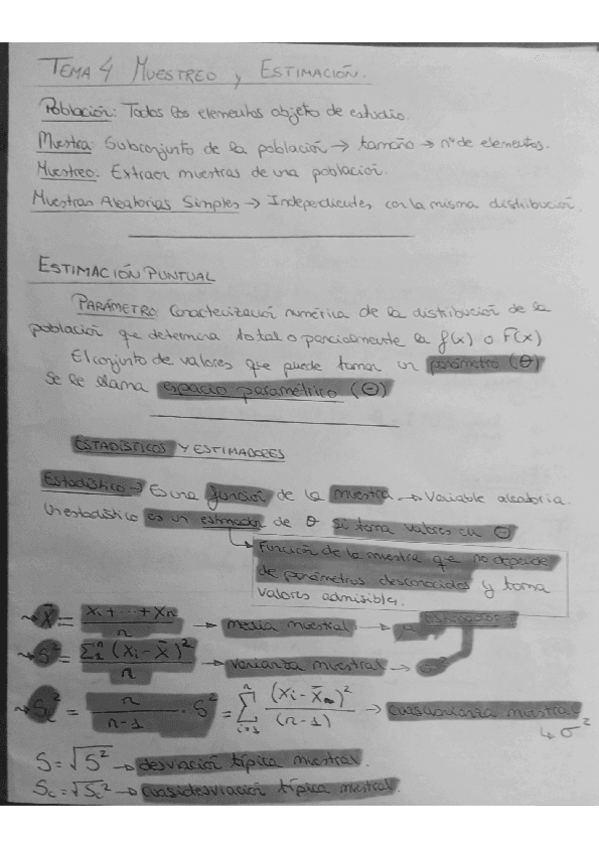 TEMA 4 MUESTREO y ESTIMACIÓN.
Población: Todos los elementos objeto de estudio.
Muestra: Subconjunto de la población → tamaño → nº de elementos.
Muestreo: Extraer muestras de una población.
Muestras Aleatorias Simples → Independientes, con la misma distribución.
ESTIMACIÓN PUNTUAL
PARÁMETRO: Caracterización numérica de la distribución de la
población que determina total o parcialmente la f(x) o F(x)
El conjunto de valores que puede tomar un parámetro (θ)
se le llama espacio paramétrico (Θ)
ESTADÍSTICOS Y ESTIMADORES
Estadístico → Es una función de la muestra → Variable aleatoria.
Un estadístico es un estimador de θ si toma valores en Θ
Función de la muestra que no depende
de parámetros desconocidos y toma
valores admisibles.
→ X̄ = (x₁ + ... + xₙ) / n → media muestral → μ
→ S² = Σ₁ⁿ (xi - X̄)² / n → varianza muestral → σ²
→ Sc² = n / (n-1) · S² = Σᵢ₌₁ⁿ (xi - X̄ₙ)² / (n-1) → cuasivarianza muestral
↳ σ²
S = √S² → desviación típica muestral.
Sc = √Sc² → cuasidesviación típica muestral.